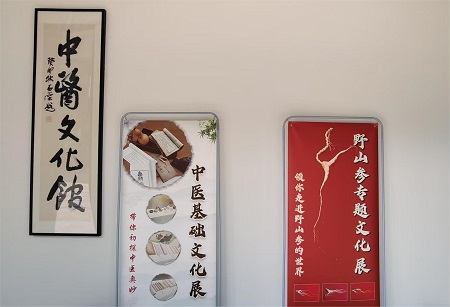 中醫文化館
中医基础文化展
带你初探中医奥妙
野山参专题文化展
领你走进野山参的世界